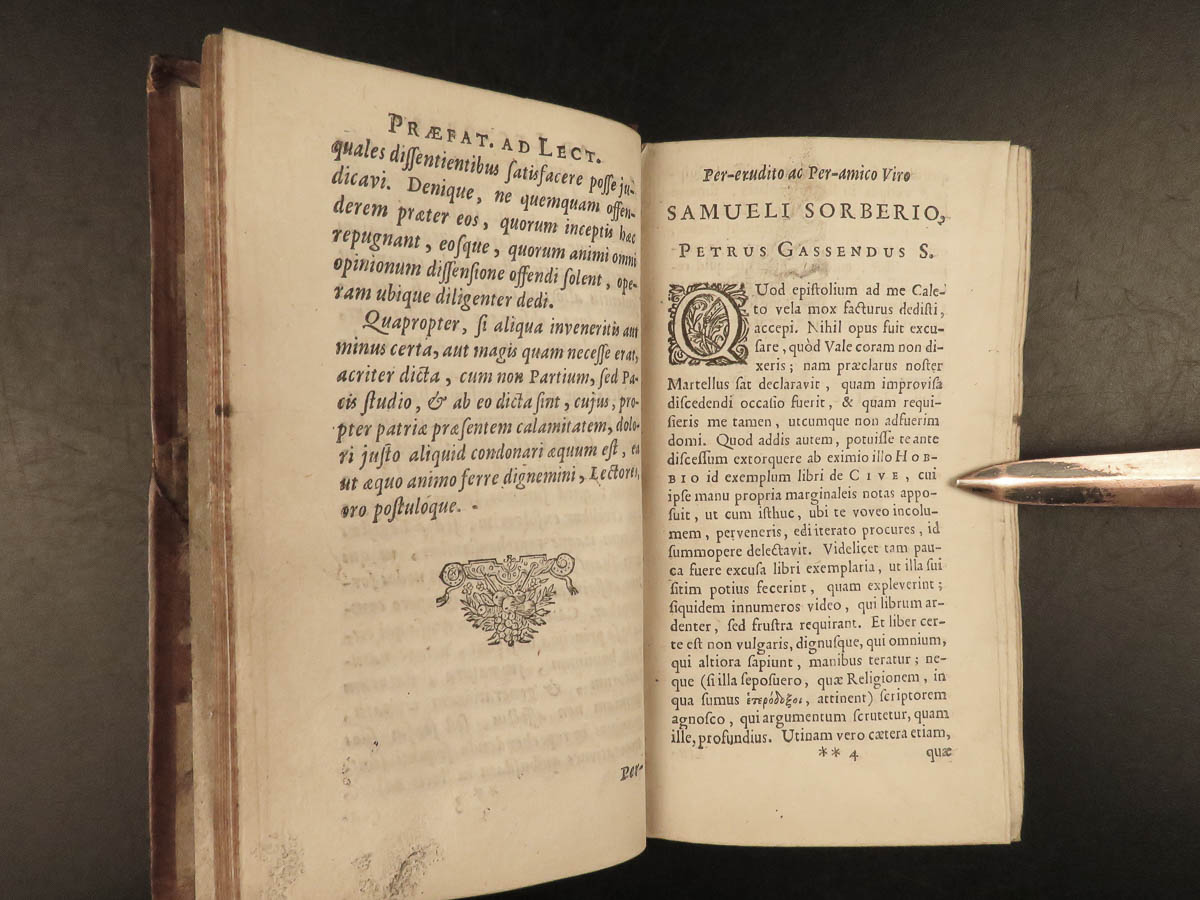 PRÆFAT. AD LECT.
quales dissentientibus satisfacere posse ju-
dicavi. Denique, ne quemquam offen-
derem præter eos, quorum inceptis hæc
repugnant, eosque, quorum animi omni
opinionum dissensione offendi solent, ope-
ram ubique diligenter dedi.
Quapropter, si aliqua inveneritis aut
minus certa, aut magis quam necesse erat,
acriter dicta, cum non Partium, sed Pa-
cis studio, & ab eo dicta sint, cujus, pro-
pter patriæ præsentem calamitatem, dolo-
ri justo aliquid condonari æquum est, ea
ut æquo animo ferre dignemini, Lectores,
oro postuloque.
Per-
Per-erudito ac Per-amico Viro
SAMUELI SORBERIO,
PETRUS GASSENDUS S.
QUod epistolium ad me Cale-
to vela mox facturus dedisti,
accepi. Nihil opus fuit excu-
sare, quòd Vale coram non di-
xeris; nam præclarus noster
Martellus sat declaravit, quam improvisa
discedendi occasio fuerit, & quam requi-
sieris me tamen, utcumque non adfuerim
domi. Quod addis autem, potuisse te ante
discessum extorquere ab eximio illo HOB-
BIO id exemplum libri de CIVE, cui
ipse manu propria marginaleis notas appo-
suit, ut cum isthuc, ubi te voveo incolu-
mem, perveneris, edi iterato procures, id
summopere delectavit. Videlicet tam pau-
ca fuere excusa libri exemplaria, ut illa sui
sitim potius fecerint, quam expleverint;
siquidem innumeros video, qui librum ar-
denter, sed frustra requirant. Et liber cer-
te est non vulgaris, dignusque, qui omnium,
qui altiora sapiunt, manibus teratur; ne-
que (si illa seposuero, quæ Religionem, in
qua sumus ἑτερόδοξοι, attinent) scriptorem
agnosco, qui argumentum scrutetur, quam
ille, profundius. Utinam vero cætera etiam,
** 4
quæ